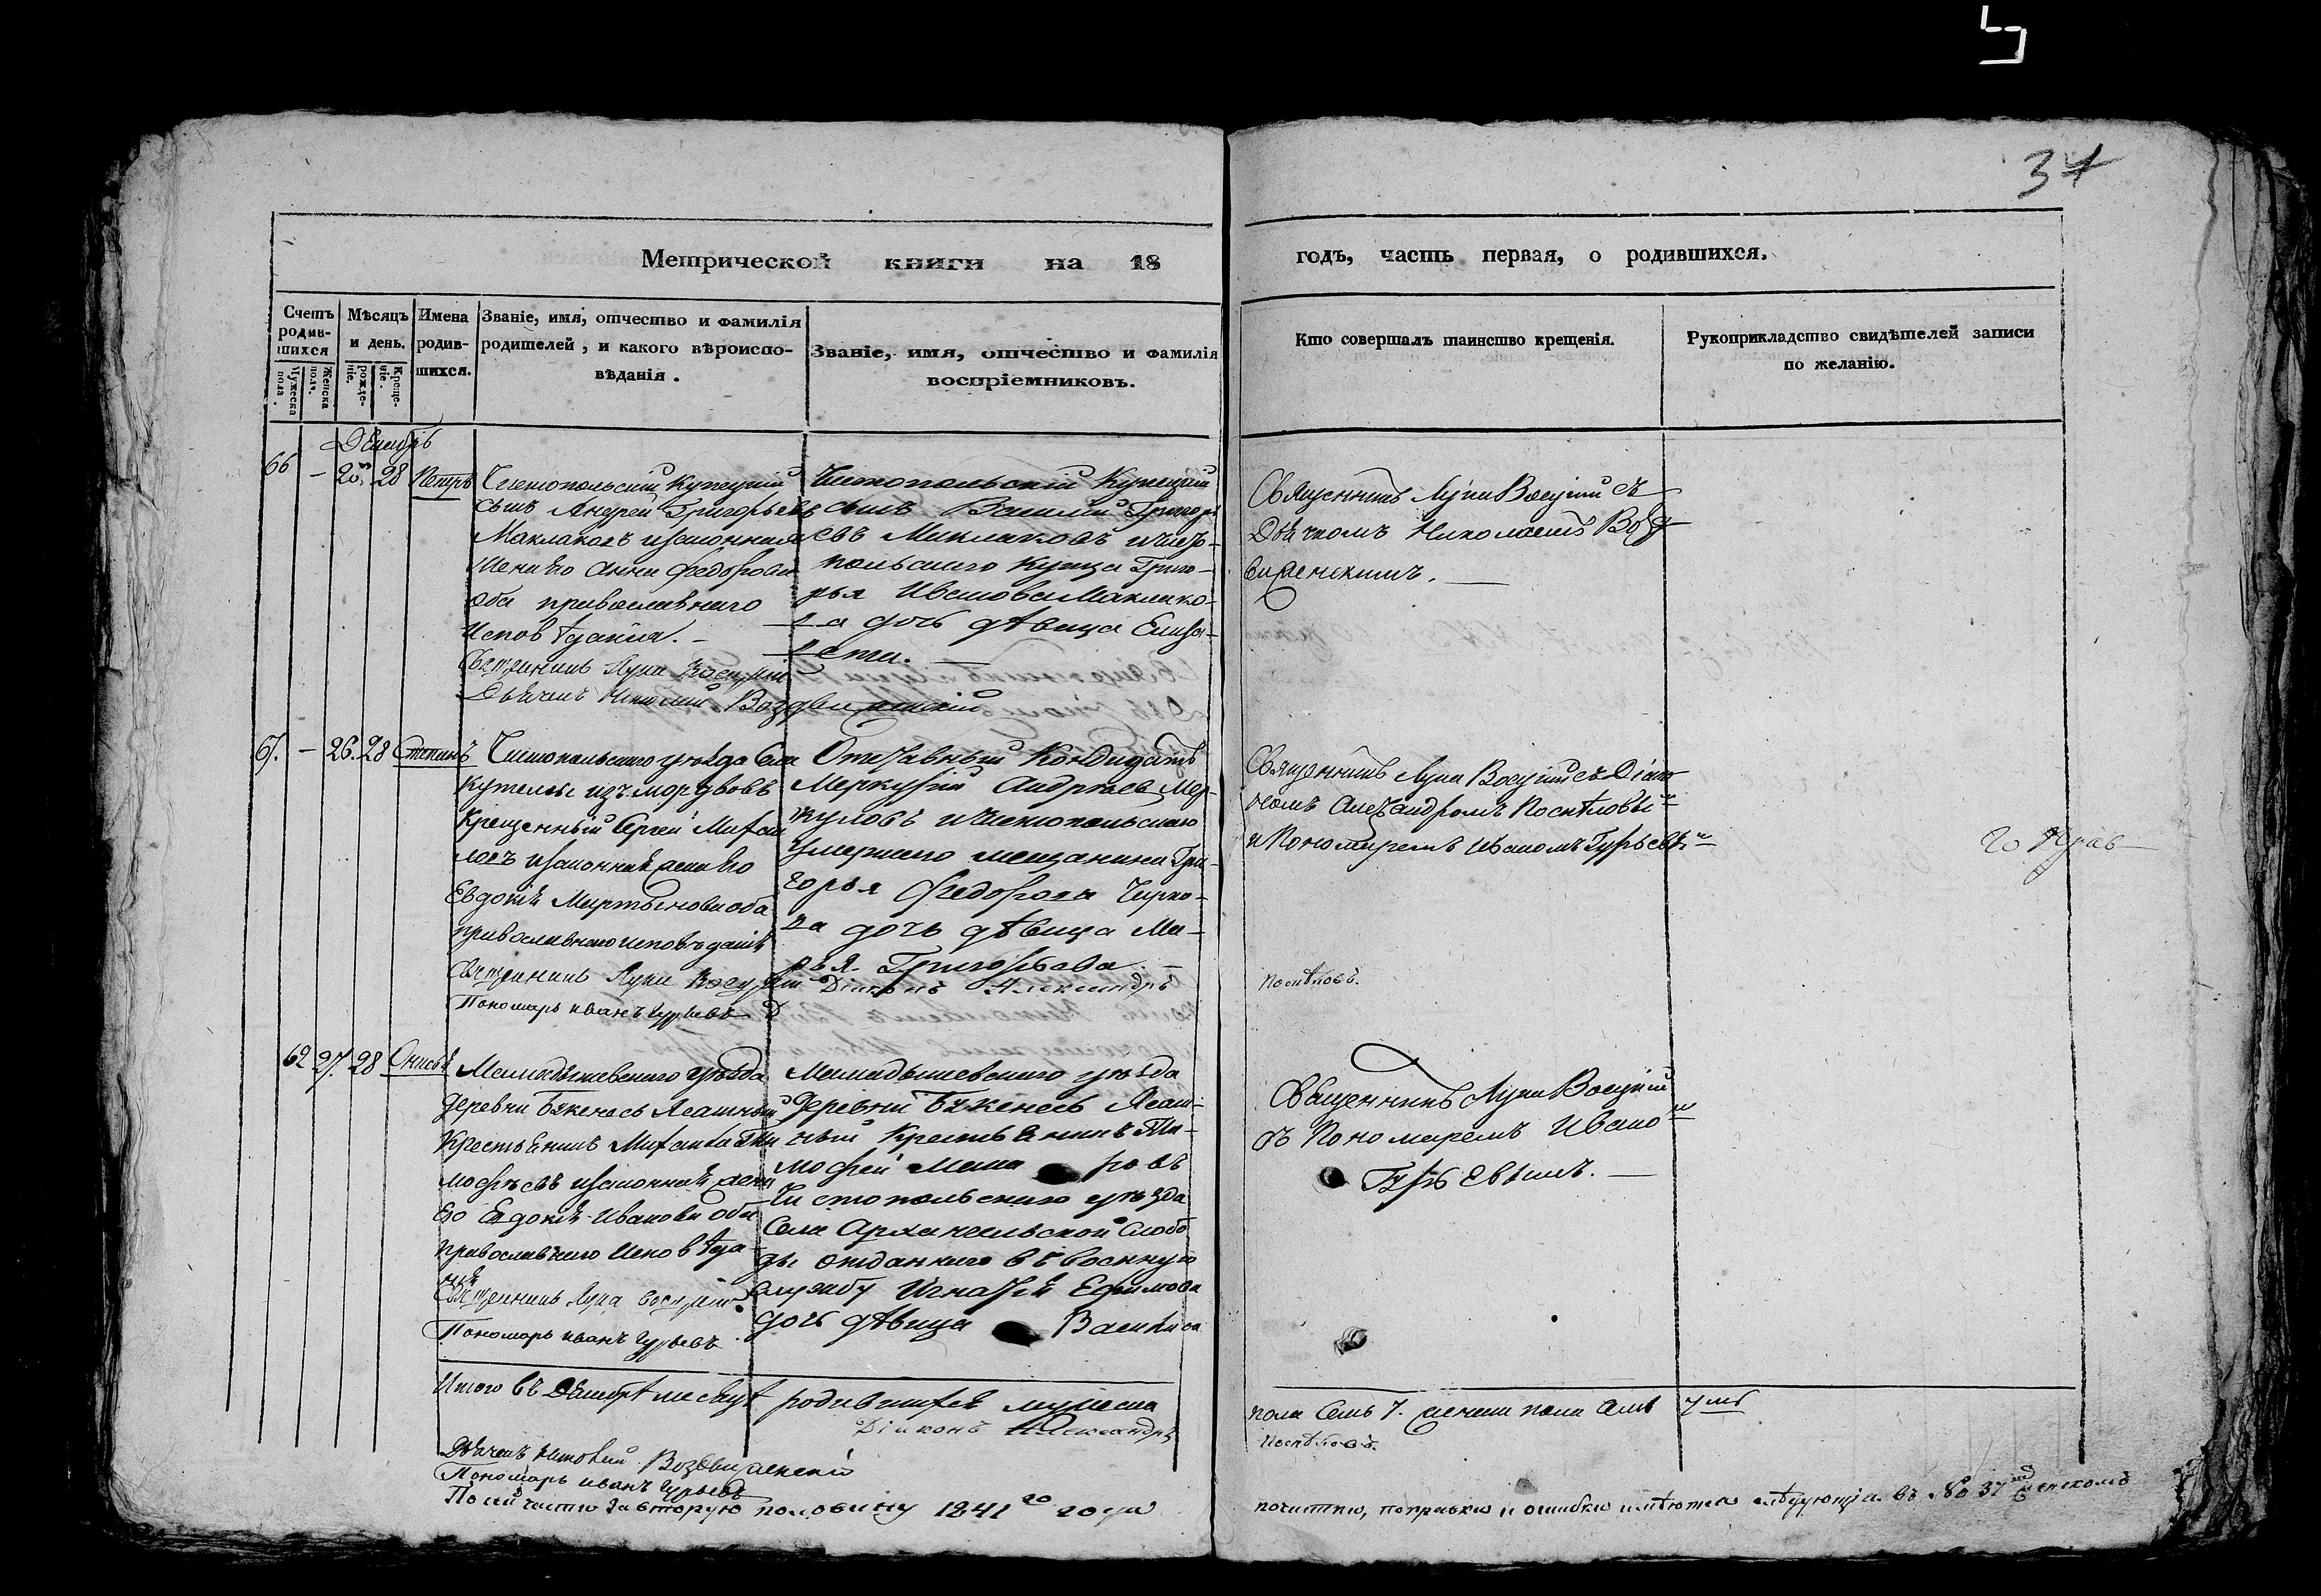 37
Метрической книги на 18
годъ, часть первая, о родившихся.
Счетъ родив-шихся
Мужеска пола.
Женска пола.
Мѣсяцъ и день.
рожде-ніе.
Креще-ніе.
Имена родив-шихся.
Званіе, имя, отчество и фамилія родителей, и какого вѣроиспо-вѣданія.
Званіе, имя, отчество и фамилія воспріемниковъ.
Кто совершалъ таинство крещенія.
Рукоприкладство свидѣтелей записи по желанію.
Декабрь
66 – 20. 28 Петръ
Чистопольскій Купецкій
сынъ Андрей Григорьевъ
Маклаковъ и законная
жена его Анна Федорова
оба православнаго
Исповѣданія. –
Священникъ Лука
Дьячекъ Николай Воздвиженскій
Чистопольскій Купецкій
сынъ Василій Григорь
евъ Маклаковъ и чисто-
польскаго Купца Григо-
рья Иванова Маклако-
ва дочь дѣвица Елиза-
вета. –
Священникъ Лука съ
Дьячкомъ Николаемъ Возд-
виженскимъ. –
67. – 26. 28 Степанъ
Чистопольскаго уѣзда Села
изъ мордвовъ
Крещенный Сергей Михаи
ловъ и законная жена его
Евдокія Мартынова оба
православнаго исповѣданія
Священникъ Лука
Пономарь Иванъ Гурьевъ
Отставный
Меркурій Андреевъ Мер-
куловъ и чистопольскаго
умершаго мещанина Гри-
горья Федорова
ва дочь дѣвица Ма-
рья Григорьева. –
Діаконъ Александръ
Поспѣловъ.
Священникъ Лука съ Діако
номъ Александромъ Поспѣловы
и Пономаремъ Иваномъ Гурьевы
62 27. 28 Анисья
Мамадышевскаго уѣзда
деревни Ясашный
Крестьянинъ Михаила Ти
мофѣевъ и законная жена
его Евдокія Иванова оба
православнаго Исповѣда-
нія
Священникъ Лука
Пономарь Иванъ Гурьевъ
Мамадышевскаго уѣзда
деревни Ясаш-
ный Крестьянинъ Ти-
мофей
Чистопольскаго уѣзда
Села Архангельской Слобо
ды отданнаго въ военную
службу Игнатья Ефимова
дочь дѣвица Василиса
Священникъ Лука
съ Пономаремъ Ивано
Гурьевымъ. –
Итого въ Декабрѣ месяцѣ родившихся мужеска
пола Семь 7. женска пола
Діаконъ Александръ
Поспѣловъ.
Дьячекъ Николай Воздвиженскій
Пономарь Иванъ Гурьевъ
По сей части за вторую половину 1841го года
почистки, поправки и ошибки имѣются слѣдующія въ № 37 женскомъ